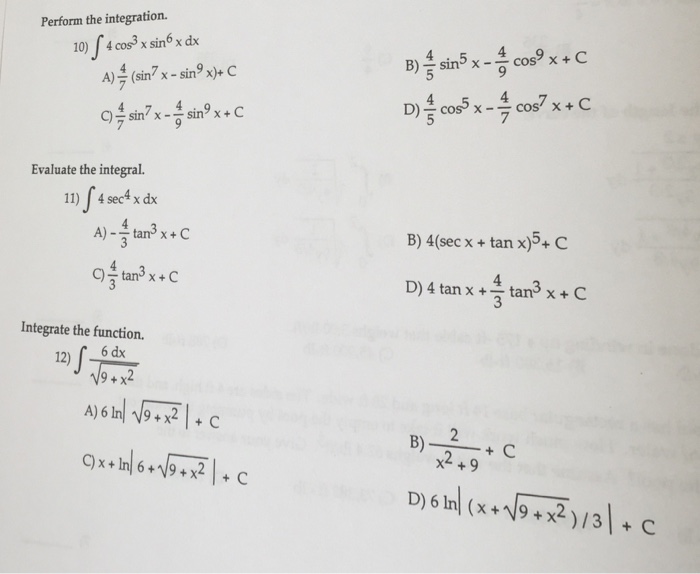 Perform the integration.
10) ∫ 4 cos³ x sin⁶ x dx
A) 4/7 (sin⁷ x - sin⁹ x)+ C
B) 4/5 sin⁵ x - 4/9 cos⁹ x + C
C) 4/7 sin⁷ x - 4/9 sin⁹ x + C
D) 4/5 cos⁵ x - 4/7 cos⁷ x + C
Evaluate the integral.
11) ∫ 4 sec⁴ x dx
A) - 4/3 tan³ x + C
B) 4(sec x + tan x)⁵ + C
C) 4/3 tan³ x + C
D) 4 tan x + 4/3 tan³ x + C
Integrate the function.
12) ∫ 6 dx / √(9 + x²)
A) 6 ln| √(9 + x²) | + C
B) 2 / (x² + 9) + C
C) x + ln| 6 + √(9 + x²) | + C
D) 6 ln| (x + √(9 + x²) ) / 3 | + C